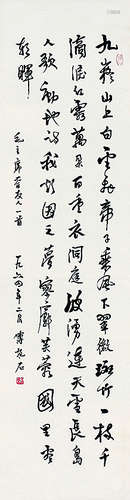 九嶷山上白雲飛帝子乘風下翠微斑竹一枝千
滴泪紅霞萬朵百重衣洞庭波湧連天雪長島
人歌動地詩我欲因之夢寥廓芙蓉國里盡
朝暉
毛主席答友人一首
一九六四年二月傅抱石